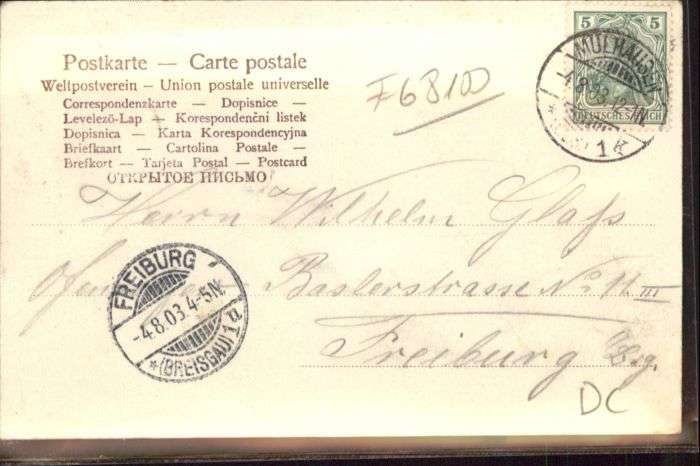 Postkarte — Carte postale
Weltpostverein – Union postale universelle
Correspondenzkarte – Dopisnice –
Levelező-Lap – Korespondenční listek
Dopisnica – Karta Korespondencyjna
Briefkaart – Cartolina Postale –
Brefkort – Tarjeta Postal – Postcard
ОТКРЫТОЕ ПИСЬМО
F68100
5 5
DEUTSCHES REICH
MÜLHAUSEN
4.8.03. 12-1N.
1k
Herrn Wilhelm Glaß
Baslerstrasse No 11 III
Freiburg Brsg.
FREIBURG
-4.8.03.4-5N.
*(BREISGAU)1d
DC